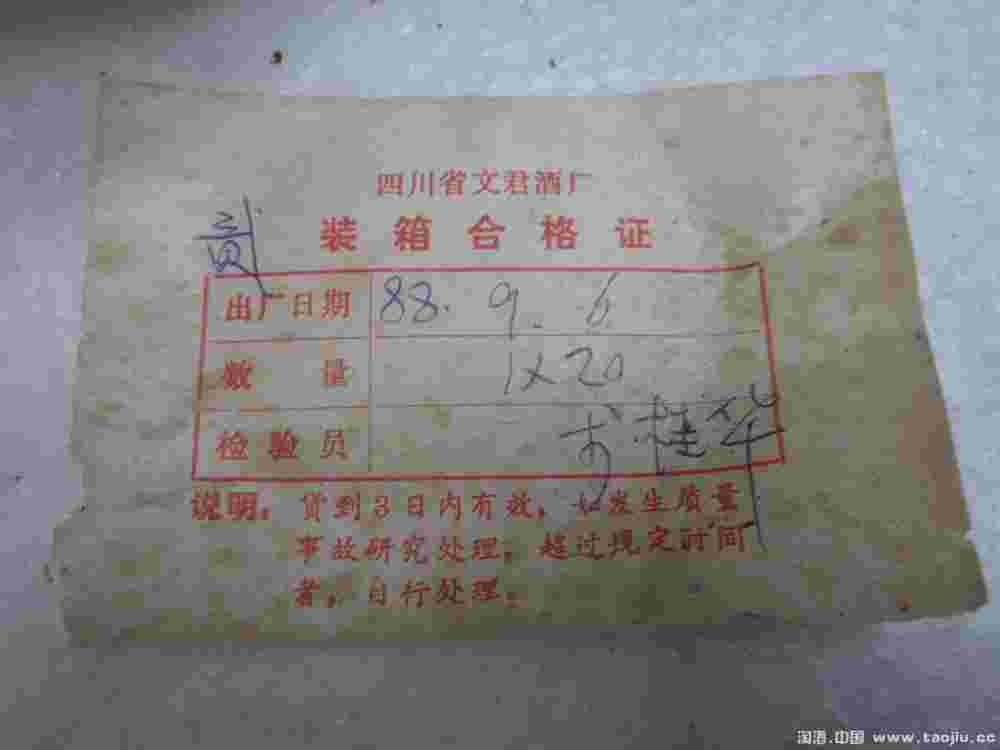 四川省文君酒厂
装箱合格证
出厂日期 88.9.6
数量 1×20
检验员 桂华
说明：货到3日内有效，如发生质量
事故研究处理，超过规定时间
者，自行处理。
淘酒.中国 www.taojiu.cc